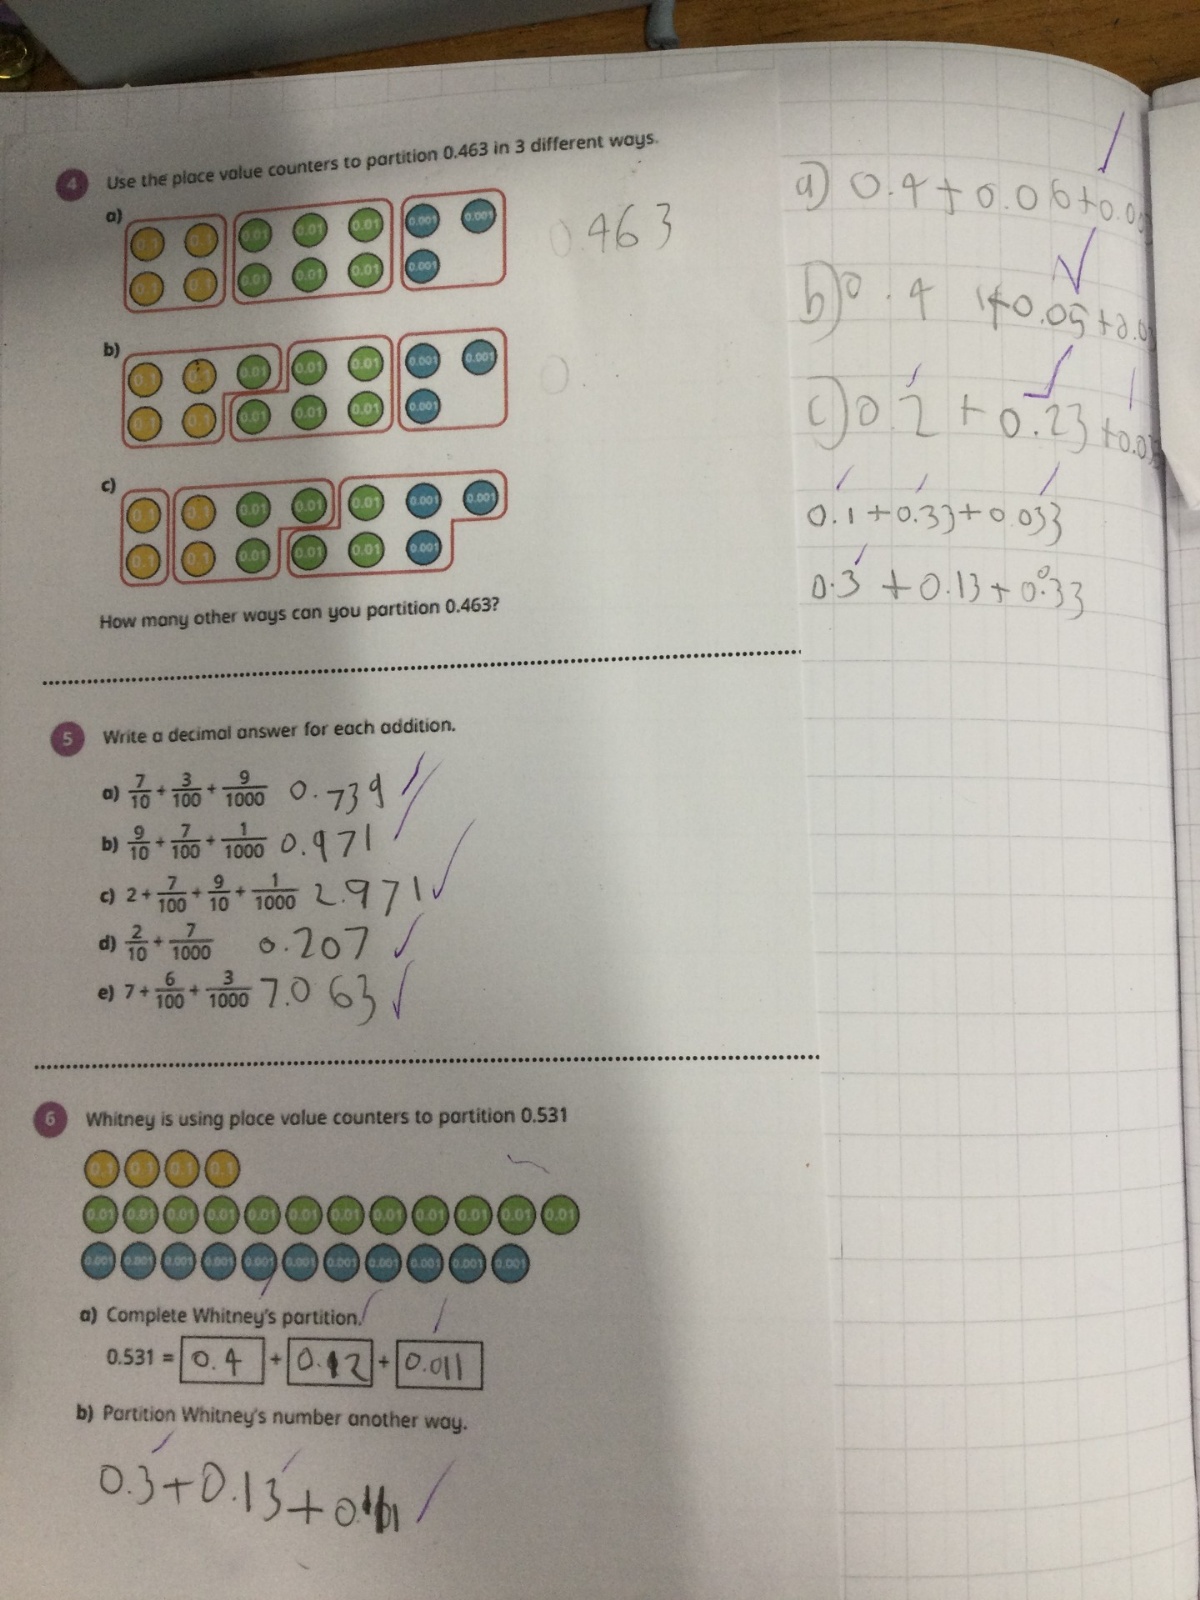 4 Use the place value counters to partition 0.463 in 3 different ways.
a)
0.1 0.1 0.01 0.01 0.01 0.001 0.001
0.1 0.1 0.01 0.01 0.01 0.001
0.463
b)
0.1 0.1 0.01 0.01 0.01 0.001 0.001
0.1 0.1 0.01 0.01 0.01 0.001
0.
c)
0.1 0.1 0.01 0.01 0.01 0.001 0.001
0.1 0.1 0.01 0.01 0.01 0.001
How many other ways can you partition 0.463?
a) 0.4 + 0.06 + 0.0
b) 0.4 + 0.05 + 0.0
c) 0.2 + 0.23 + 0.03
0.1 + 0.33 + 0.033
0.3 + 0.13 + 0.033
5 Write a decimal answer for each addition.
a) 7/10 + 3/100 + 9/1000 0.739
b) 9/10 + 7/100 + 1/1000 0.971
c) 2 + 7/100 + 9/10 + 1/1000 2.971
d) 2/10 + 7/1000 0.207
e) 7 + 6/100 + 3/1000 7.063
6 Whitney is using place value counters to partition 0.531
0.1 0.1 0.1 0.1
0.01 0.01 0.01 0.01 0.01 0.01 0.01 0.01 0.01 0.01 0.01 0.01
0.001 0.001 0.001 0.001 0.001 0.001 0.001 0.001 0.001 0.001 0.001
a) Complete Whitney's partition.
0.531 = 0.4 + 0.12 + 0.011
b) Partition Whitney's number another way.
0.3 + 0.13 +